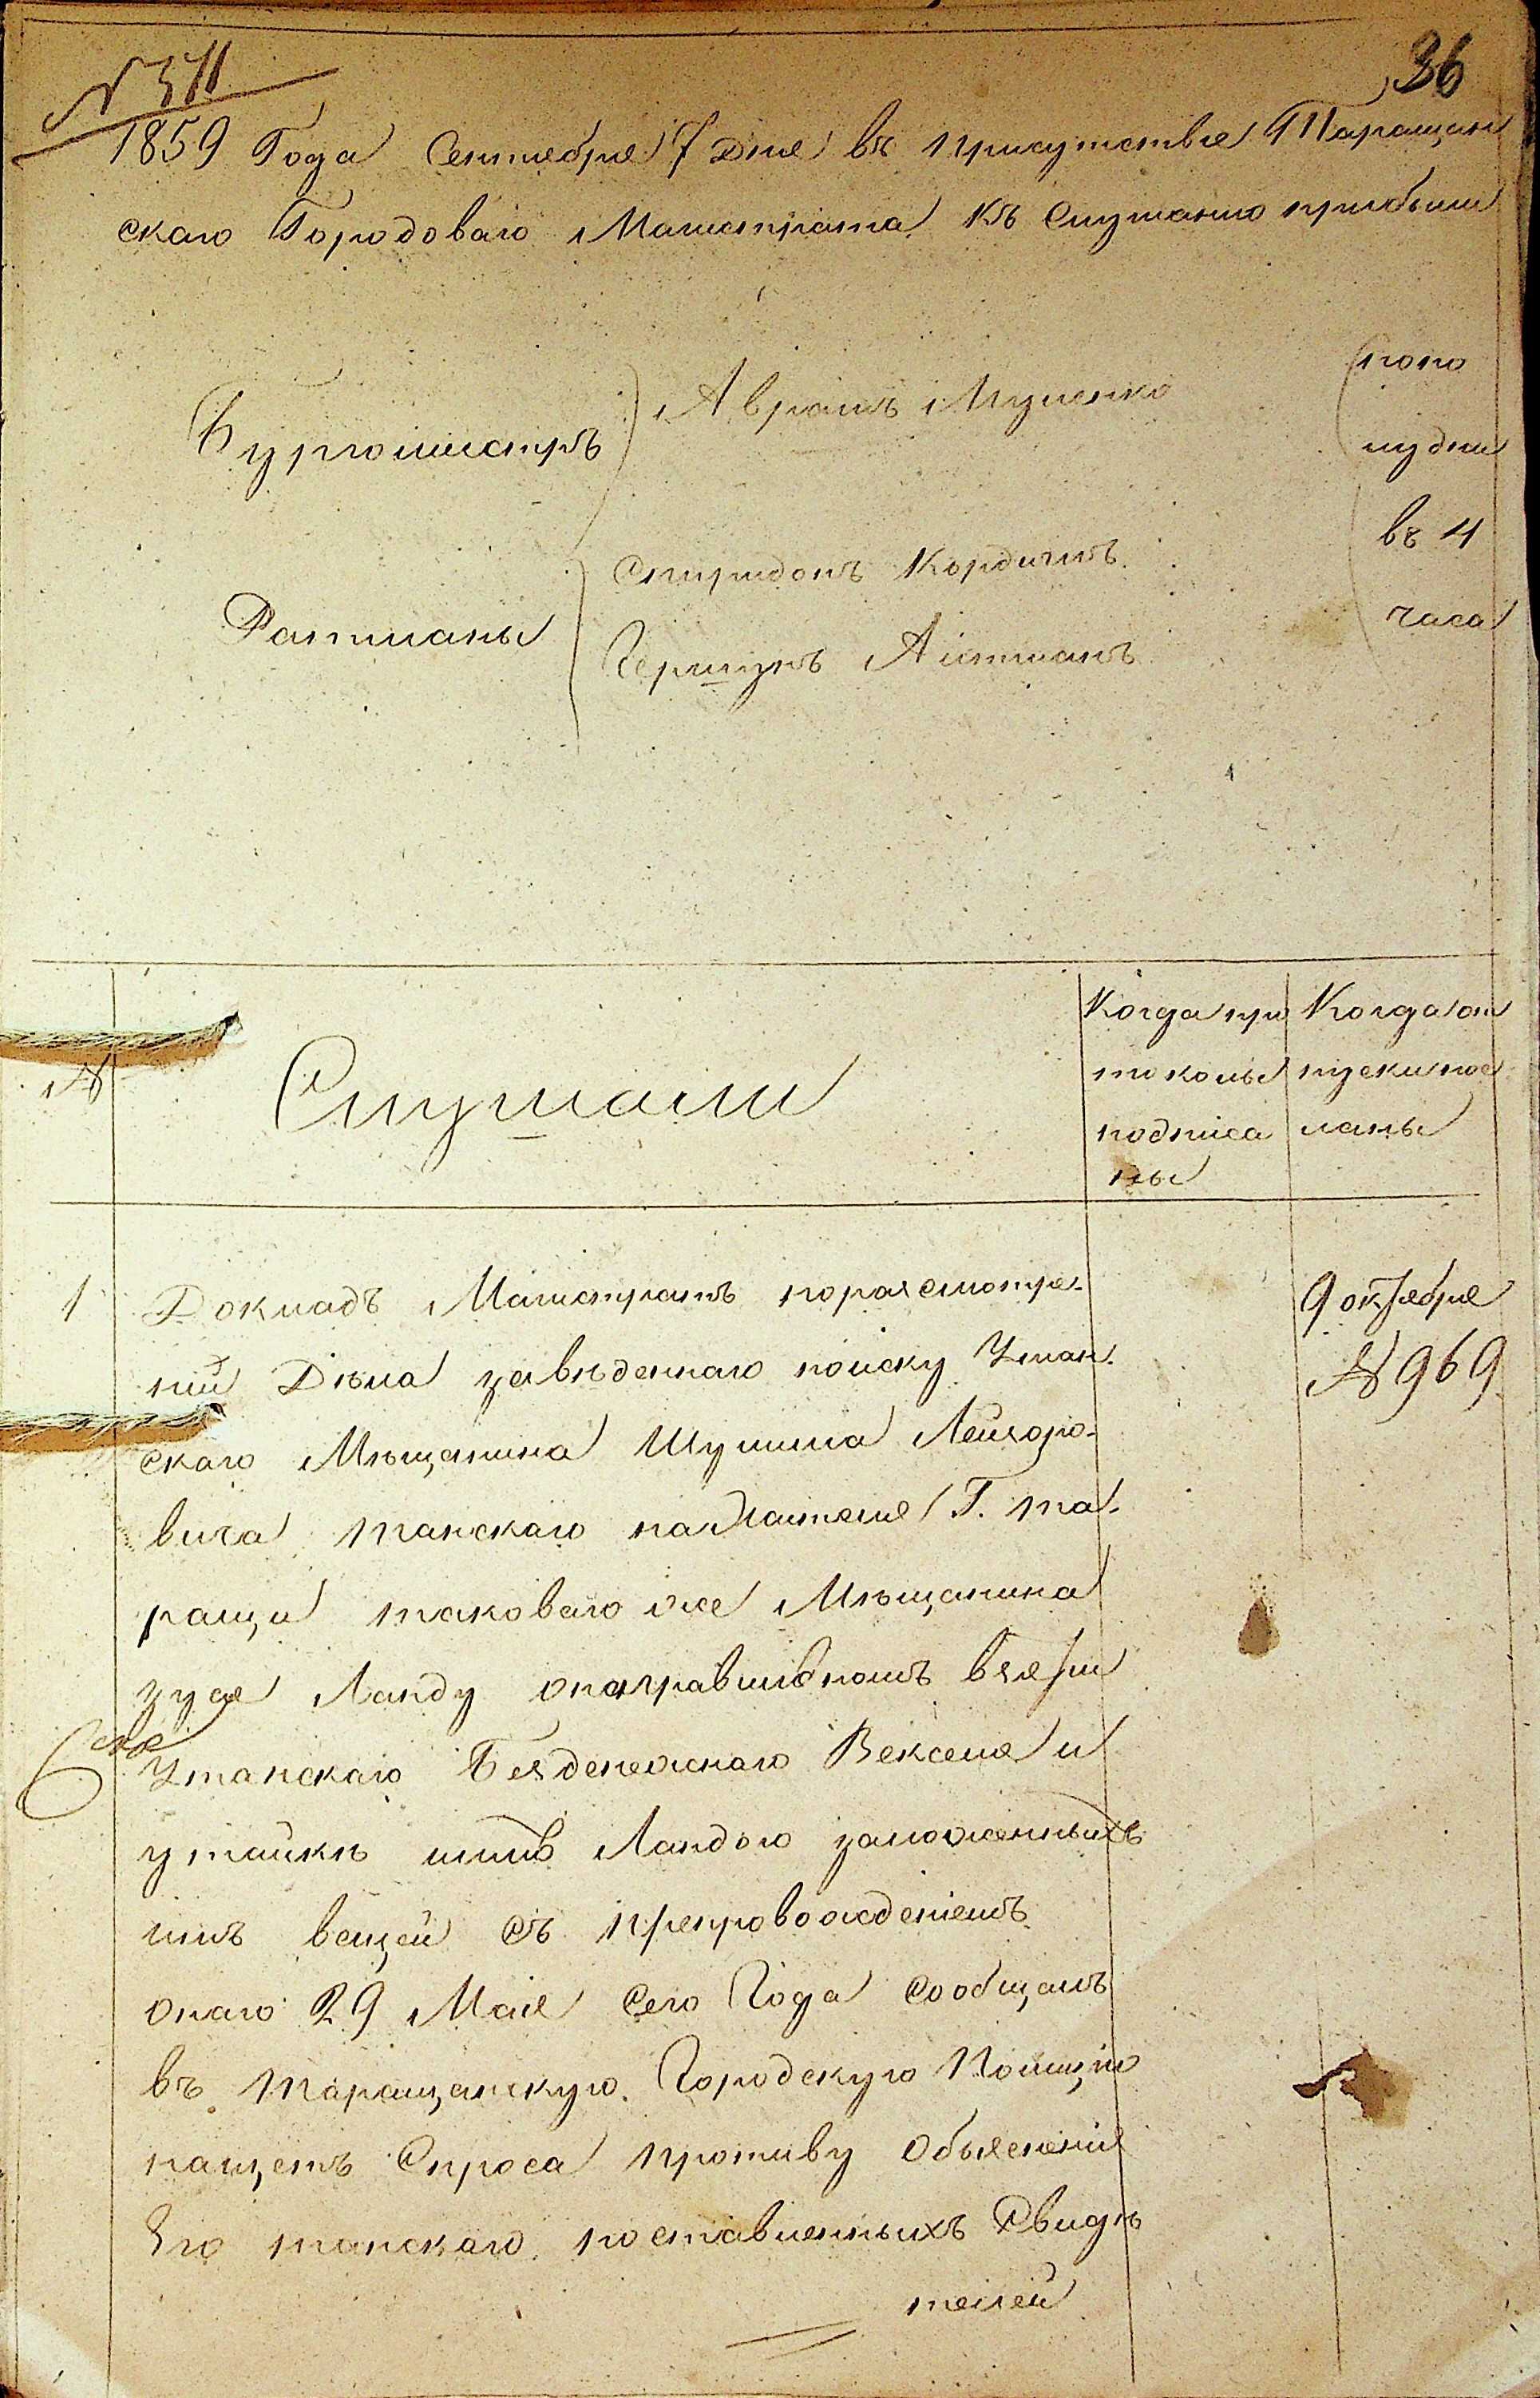 № 311
36
1859 Года Сентября 7 дня въ присутствіе Таращан
скаго Городоваго Магистрата къ слушанію прибыли
Бургомистръ
Аврамъ
Ратманы
Спиридонъ Кордишъ
Гершукъ Альтманъ
попо
лудни
въ 4
часа
№
Слушали
Когда про
токолы
подписа
ны
Когда от
пуски пос
ланы
1
Докладъ Магистратъ поразсмотре-
ніи Дѣла заведеннаго поиску Уман-
скаго Мѣщанина Шулима Лейзоро-
вича Танскаго на жителя Г. Та-
ращи таковаго же Мѣщанина
Зуся Ланду о неправильномъ взятіи
у Танскаго Безденежнаго Векселя и
утайкѣ имъ Ландою заложенныхъ
имъ вещей съ препровожденіемъ
онаго 29 Мая сего Года сообщалъ
въ Таращанскую Городскую Полицію
насчетъ Спроса противу Объясненія
Его Танскаго поставленныхъ Свидѣ
телей
9 октября
№ 969